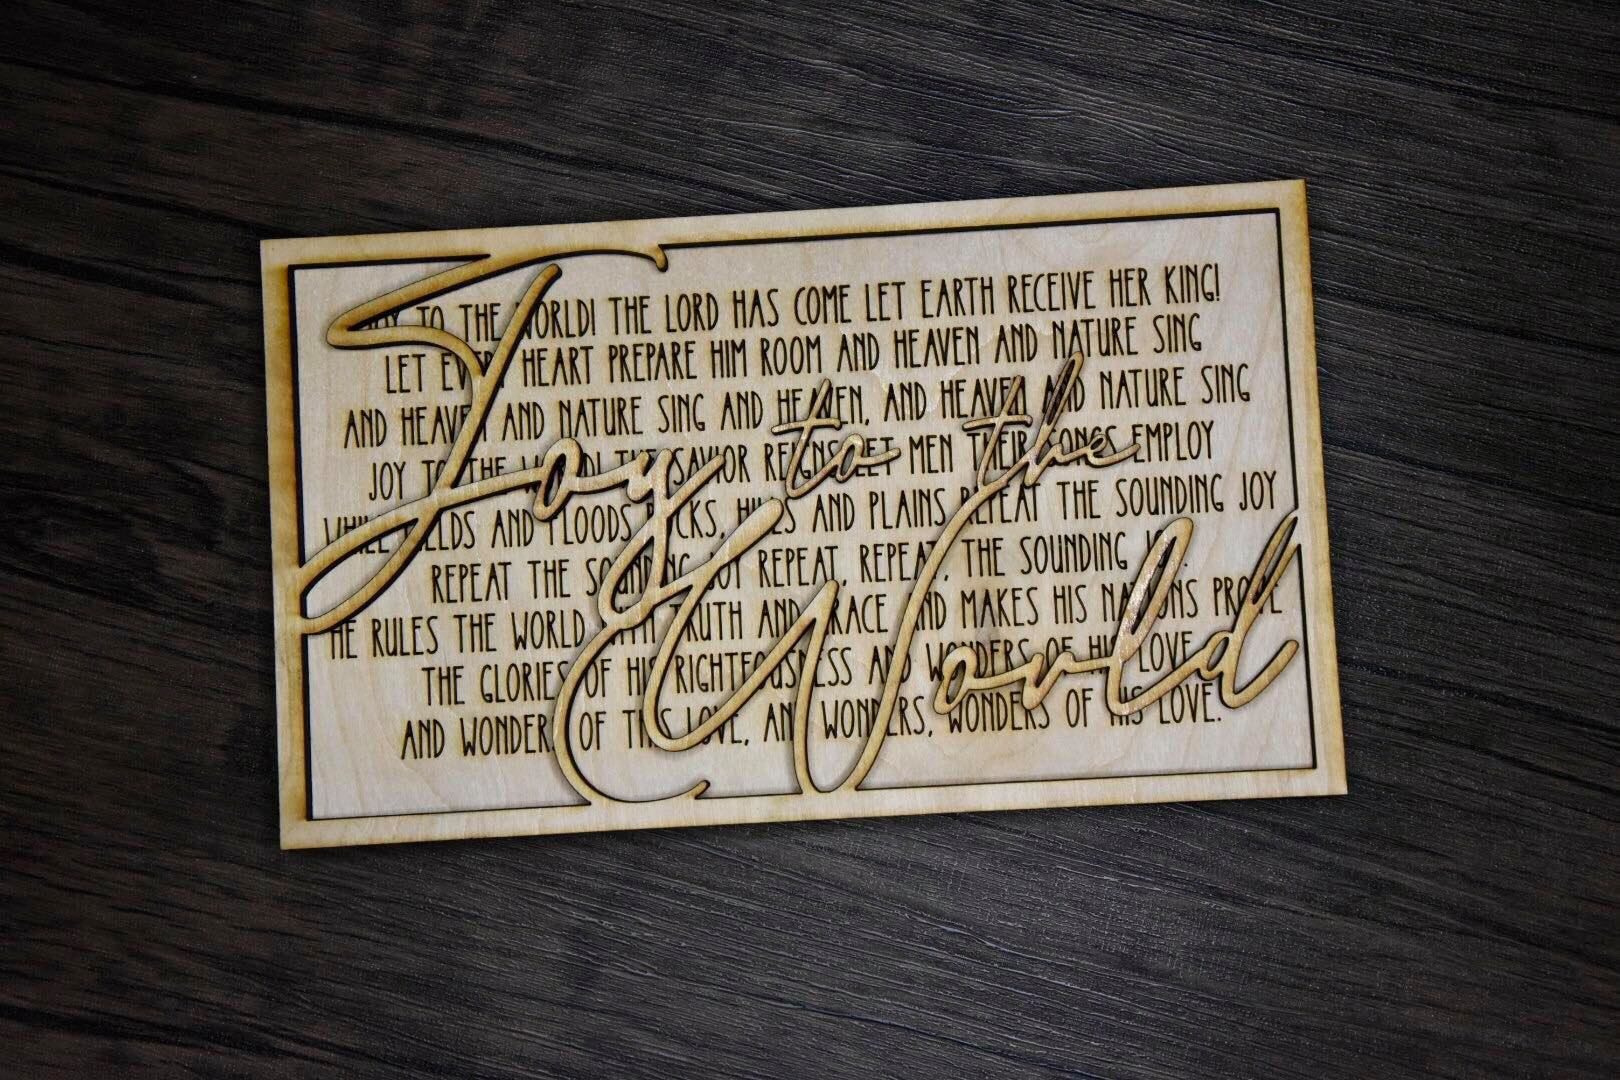 JOY TO THE WORLD! THE LORD HAS COME LET EARTH RECEIVE HER KING!
LET EVERY HEART PREPARE HIM ROOM AND HEAVEN AND NATURE SING
AND HEAVEN AND NATURE SING AND HEAVEN, AND HEAVEN AND NATURE SING
JOY TO THE WORLD! THE SAVIOR REIGNS LET MEN THEIR SONGS EMPLOY
WHILE FIELDS AND FLOODS ROCKS, HILLS AND PLAINS REPEAT THE SOUNDING JOY
REPEAT THE SOUNDING JOY REPEAT, REPEAT, THE SOUNDING JOY.
HE RULES THE WORLD WITH TRUTH AND GRACE AND MAKES HIS NATIONS PROVE
THE GLORIES OF HIS RIGHTEOUSNESS AND WONDERS OF HIS LOVE
AND WONDERS OF THIS LOVE, AND WONDERS, WONDERS OF HIS LOVE.
Joy to the
World